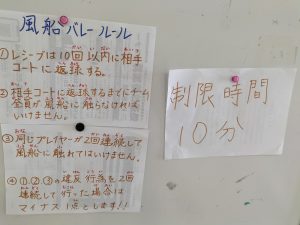 風船バレー ルール
①レシーブは10回以内に相手
コートに返球する。
②相手コートに返球するまでにチーム
全員が風船に触らなければ
いけません。
③同じプレイヤーが2回連続して
風船に触れてはいけません。
④①②③の違反行為を2回
連続して行った場合は
マイナス1点とします!!
制限時間
10分